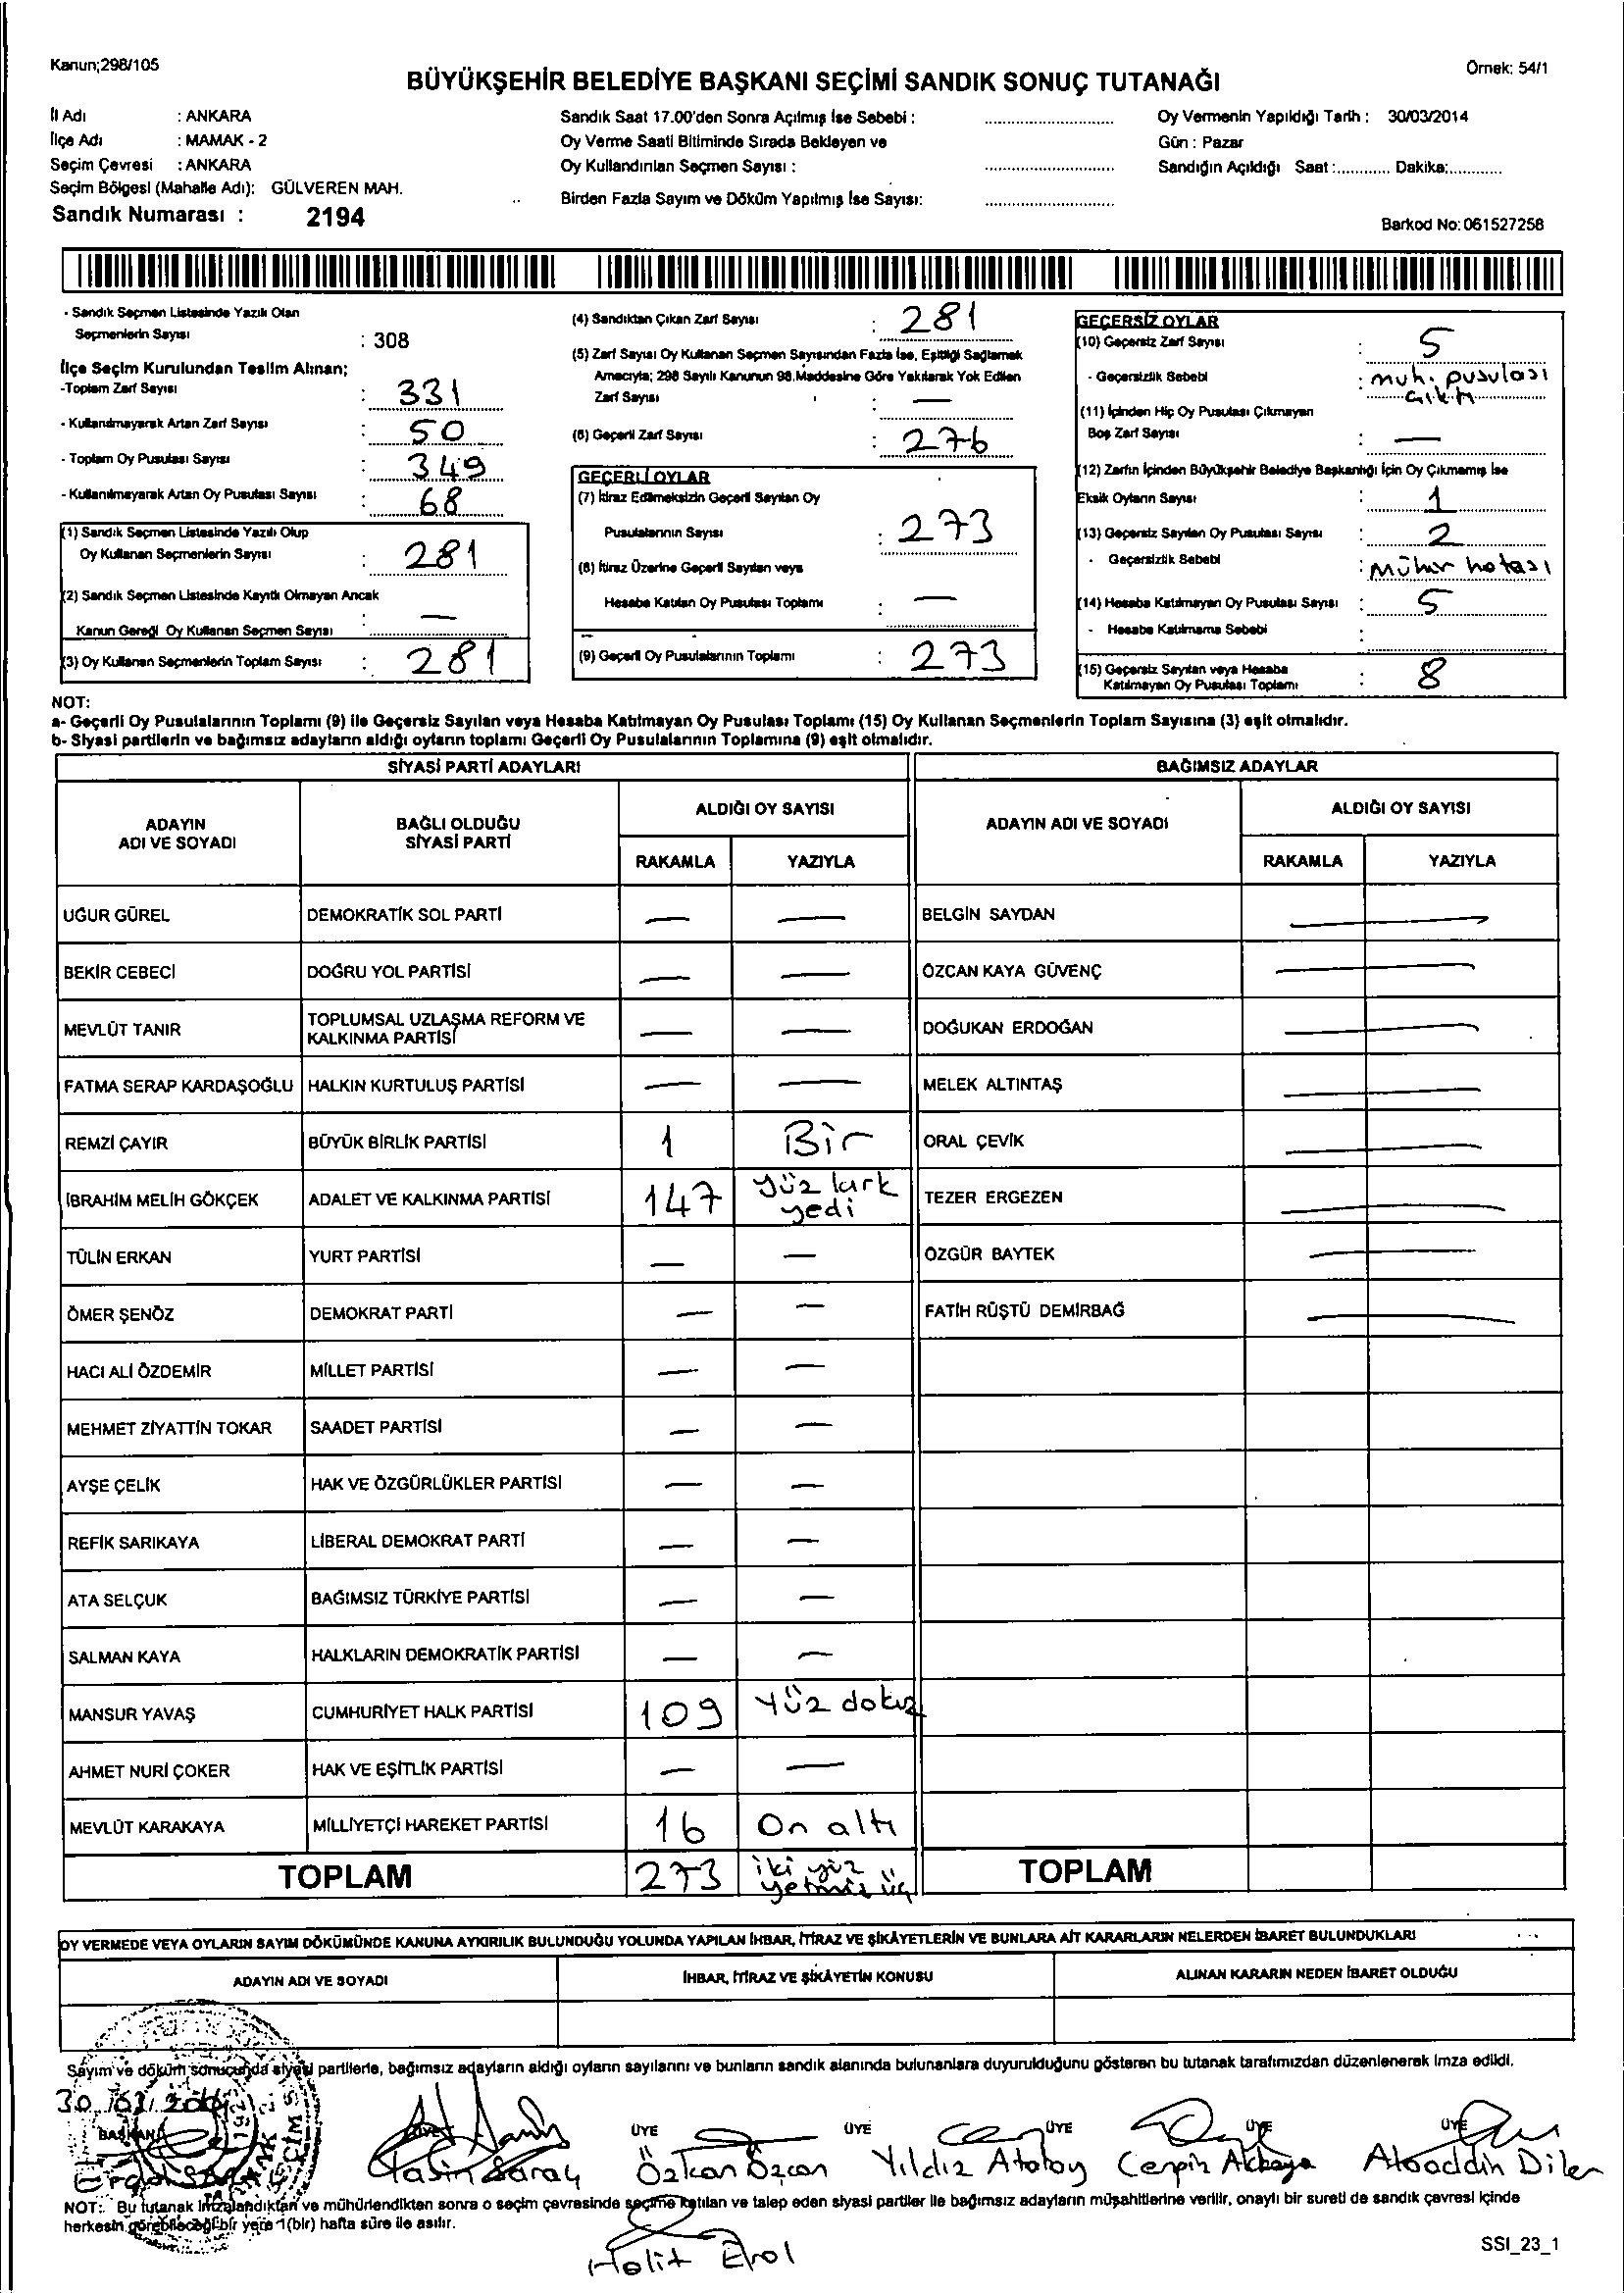 Kanun;298/105
Örnek: 54/1
BÜYÜKŞEHİR BELEDİYE BAŞKANI SEÇİMİ SANDIK SONUÇ TUTANAĞI
İl Adı : ANKARA
İlçe Adı : MAMAK - 2
Seçim Çevresi : ANKARA
Seçim Bölgesi (Mahalle Adı): GÜLVEREN MAH.
Sandık Numarası : 2194
Sandık Saat 17.00'den Sonra Açılmış İse Sebebi :
Oy Verme Saati Bitiminde Sırada Bekleyen ve
Oy Kullandırılan Seçmen Sayısı :
Birden Fazla Sayım ve Döküm Yapılmış İse Sayısı:
Oy Vermenin Yapıldığı Tarih : 30/03/2014
Gün : Pazar
Sandığın Açıldığı Saat :............ Dakika:............
Barkod No: 061527258
- Sandık Seçmen Listesinde Yazılı Olan
Seçmenlerin Sayısı : 308
İlçe Seçim Kurulundan Teslim Alınan;
-Toplam Zarf Sayısı : 331
- Kullanılmayarak Artan Zarf Sayısı : 50
- Toplam Oy Pusulası Sayısı : 349
- Kullanılmayarak Artan Oy Pusulası Sayısı : 68
(1) Sandık Seçmen Listesinde Yazılı Olup
Oy Kullanan Seçmenlerin Sayısı : 281
(2) Sandık Seçmen Listesinde Kayıtlı Olmayan Ancak
Kanun Gereği Oy Kullanan Seçmen Sayısı —
(3) Oy Kullanan Seçmenlerin Toplam Sayısı : 281
(4) Sandıktan Çıkan Zarf Sayısı : 281
(5) Zarf Sayısı Oy Kullanan Seçmen Sayısından Fazla İse, Eşitliği Sağlamak
Amacıyla; 298 Sayılı Kanunun 98.Maddesine Göre Yakılarak Yok Edilen
Zarf Sayısı : —
(6) Geçerli Zarf Sayısı : 276
GEÇERLİ OYLAR
(7) İtiraz Edilmeksizin Geçerli Sayılan Oy
Pusulalarının Sayısı : 273
(8) İtiraz Üzerine Geçerli Sayılan veya
Hesaba Katılan Oy Pusulası Toplamı : —
(9) Geçerli Oy Pusulalarının Toplamı : 273
GEÇERSİZ OYLAR
(10) Geçersiz Zarf Sayısı : 5
- Geçersizlik Sebebi : muh. pusulası
çıktı
(11) İçinden Hiç Oy Pusulası Çıkmayan
Boş Zarf Sayısı : —
(12) Zarfın İçinden Büyükşehir Belediye Başkanlığı İçin Oy Çıkmamış İse
Eksik Oyların Sayısı : 1
(13) Geçersiz Sayılan Oy Pusulası Sayısı : 2
- Geçersizlik Sebebi : Mühür hatası
(14) Hesaba Katılmayan Oy Pusulası Sayısı : 5
- Hesaba Katılmama Sebebi :
(15) Geçersiz Sayılan veya Hesaba
Katılmayan Oy Pusulası Toplamı : 8
NOT:
a- Geçerli Oy Pusulalarının Toplamı (9) ile Geçersiz Sayılan veya Hesaba Katılmayan Oy Pusulası Toplamı (15) Oy Kullanan Seçmenlerin Toplam Sayısına (3) eşit olmalıdır.
b- Siyasi partilerin ve bağımsız adayların aldığı oyların toplamı Geçerli Oy Pusulalarının Toplamına (9) eşit olmalıdır.
SİYASİ PARTİ ADAYLARI
ADAYIN
ADI VE SOYADI
BAĞLI OLDUĞU
SİYASİ PARTİ
ALDIĞI OY SAYISI
RAKAMLA YAZIYLA
UĞUR GÜREL DEMOKRATİK SOL PARTİ — —
BEKİR CEBECİ DOĞRU YOL PARTİSİ — —
MEVLÜT TANIR TOPLUMSAL UZLAŞMA REFORM VE
KALKINMA PARTİSİ — —
FATMA SERAP KARDAŞOĞLU HALKIN KURTULUŞ PARTİSİ — —
REMZİ ÇAYIR BÜYÜK BİRLİK PARTİSİ 1 Bir
İBRAHİM MELİH GÖKÇEK ADALET VE KALKINMA PARTİSİ 147 yüz kırk
yedi
TÜLİN ERKAN YURT PARTİSİ — —
ÖMER ŞENÖZ DEMOKRAT PARTİ — —
HACI ALİ ÖZDEMİR MİLLET PARTİSİ — —
MEHMET ZİYATTİN TOKAR SAADET PARTİSİ — —
AYŞE ÇELİK HAK VE ÖZGÜRLÜKLER PARTİSİ — —
REFİK SARIKAYA LİBERAL DEMOKRAT PARTİ — —
ATA SELÇUK BAĞIMSIZ TÜRKİYE PARTİSİ — —
SALMAN KAYA HALKLARIN DEMOKRATİK PARTİSİ — —
MANSUR YAVAŞ CUMHURİYET HALK PARTİSİ 109 Yüz dokuz
AHMET NURİ ÇOKER HAK VE EŞİTLİK PARTİSİ — —
MEVLÜT KARAKAYA MİLLİYETÇİ HAREKET PARTİSİ 16 On altı
TOPLAM 273 iki yüz
yetmiş üç
BAĞIMSIZ ADAYLAR
ADAYIN ADI VE SOYADI
ALDIĞI OY SAYISI
RAKAMLA YAZIYLA
BELGİN SAYDAN —
ÖZCAN KAYA GÜVENÇ —
DOĞUKAN ERDOĞAN —
MELEK ALTINTAŞ —
ORAL ÇEVİK —
TEZER ERGEZEN —
ÖZGÜR BAYTEK —
FATİH RÜŞTÜ DEMİRBAĞ —
TOPLAM
OY VERMEDE VEYA OYLARIN SAYIM DÖKÜMÜNDE KANUNA AYKIRILIK BULUNDUĞU YOLUNDA YAPILAN İHBAR, İTİRAZ VE ŞİKÂYETLERİN VE BUNLARA AİT KARARLARIN NELERDEN İBARET BULUNDUKLARI
ADAYIN ADI VE SOYADI
İHBAR, İTİRAZ VE ŞİKÂYETİN KONUSU
ALINAN KARARIN NEDEN İBARET OLDUĞU
Sayım ve döküm sonucunda siyasi partilerle, bağımsız adayların aldığı oyların sayılarını ve bunların sandık alanında bulunanlara duyurulduğunu gösteren bu tutanak tarafımızdan düzenlenerek imza edildi.
30/03/2014
BAŞKAN ÜYE ÜYE ÜYE ÜYE ÜYE ÜYE
Tasin Saray Özkan Özcan Yıldız Atalay Cengiz Akkaya Alaaddin Diler
NOT: Bu tutanak imzalandıktan ve mühürlendikten sonra o seçim çevresinde seçime katılan ve talep eden siyasi partiler ile bağımsız adayların müşahitlerine verilir, onaylı bir sureti de sandık çevresi içinde
herkesin görebileceği bir yere 1(bir) hafta süre ile asılır.
Halit Erol
SSI_23_1